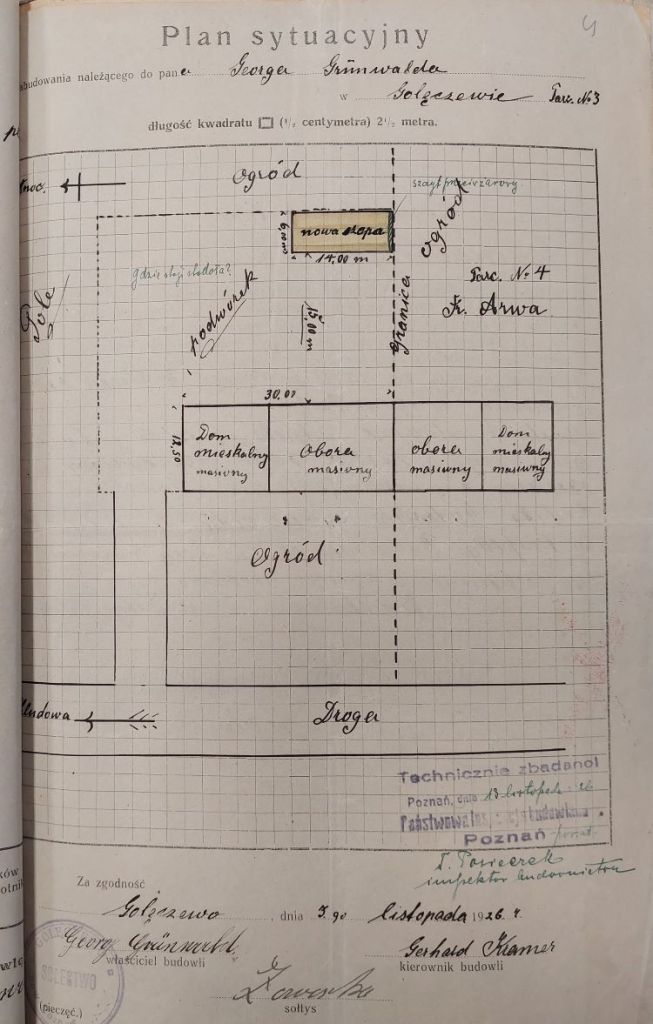 4
Plan sytuacyjny
abudowania należącego do pana Georga Grünwalda
w Golęczewie Parc. № 3
długość kwadratu (1/2 centymetra) 2 1/2 metra.
Ogród
szczyt przeciwżarowy
nowa szopa
6,00m
14,00 m
Ogród
Gdzie stoi stodoła?
Parc. № 4
Fr. Arwa
Pole
podwórek
15,00 m
granica
30,00
12,50
Dom mieskalny masiwny
obora masiwny
obora masiwny
Dom mieskalny masiwny
Ogród
Droga
Technicznie zbadano!
Poznań, dnia 13 listopada 26
Poznań powiat.
inspektor budownictwa
Za zgodność
Golęczewo, dnia 3.go listopada 1926 r.
Georg Grünwald.
właściciel budowli
Gerhard Kramer
kierownik budowli
SOŁECTWO
(pieczęć.)
sołtys